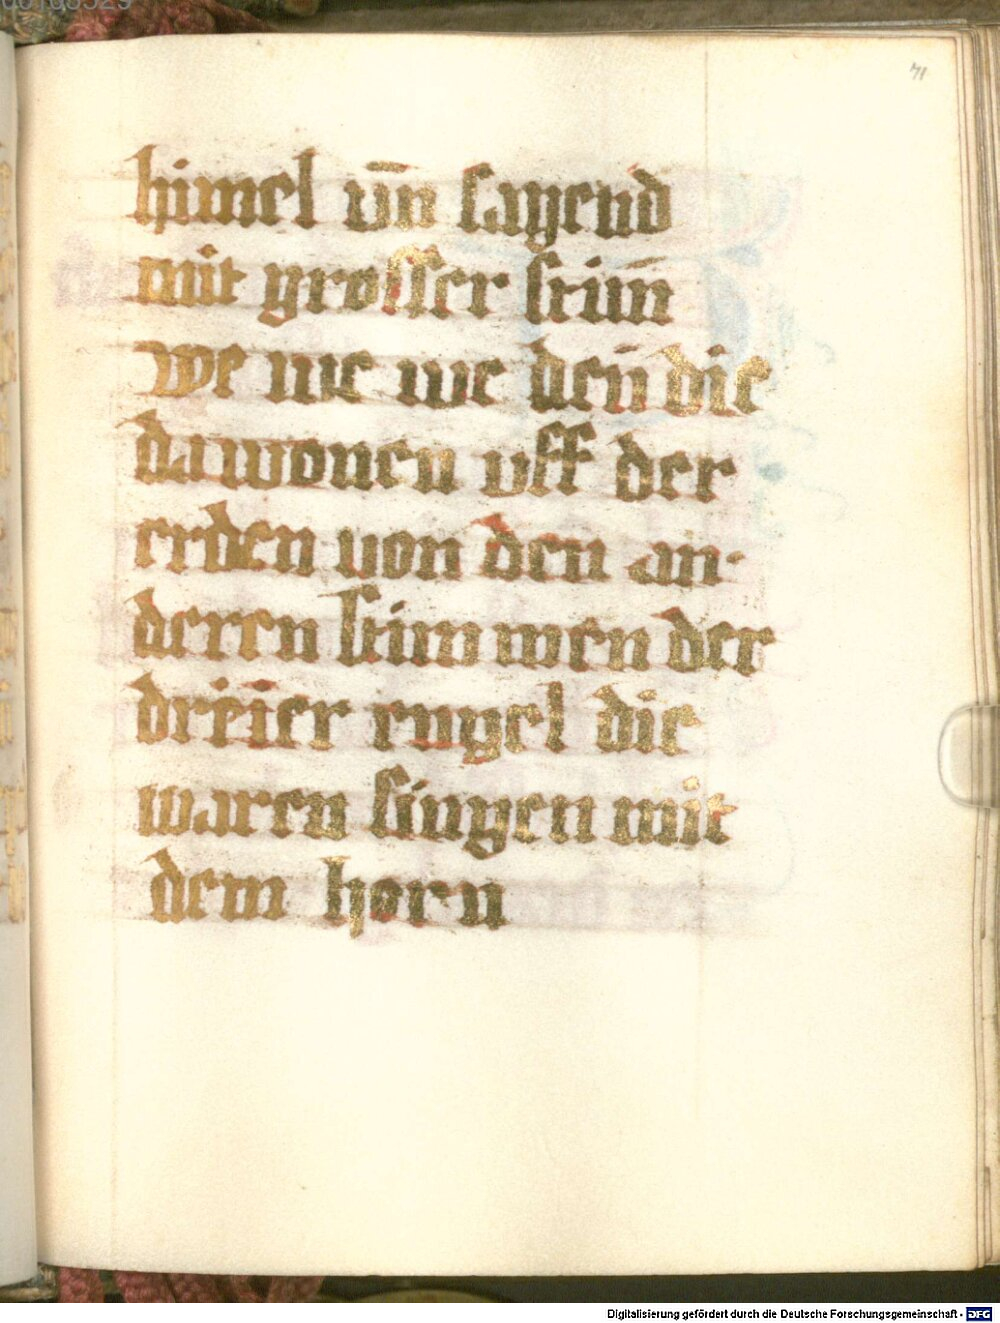 71
himel vn̄ sagend
mit grosser stim̄
we we we den̄ die
da wonen vff der
erden von den an-
deren stimmen der
dreiier engel die
waren singen mit
dem horn
Digitalisierung gefördert durch die Deutsche Forschungsgemeinschaft - DFG